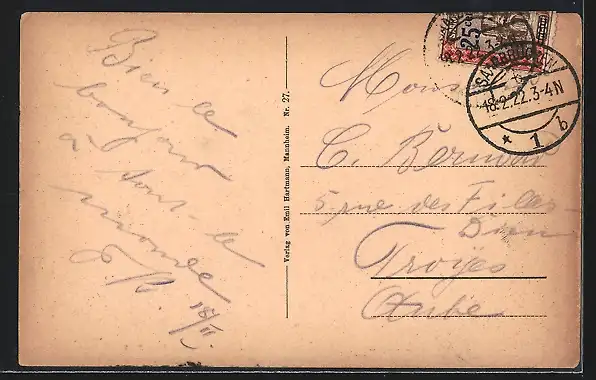 Bien le
bonjour
à tout le
monde
18/II.
Verlag von Emil Hartmann, Mannheim. Nr. 27.
25
18.2.22.3-4N
* 1 b
C. Bernard
5 rue des Filles-
Dieu
Troyes
Aube